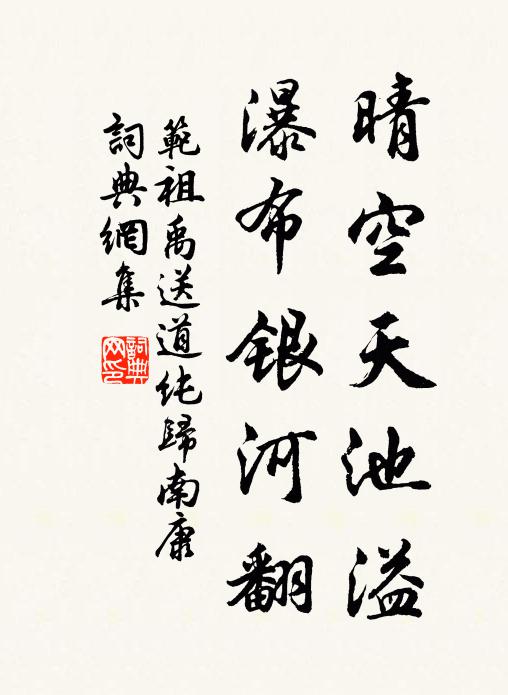 晴空天池溢
瀑布銀河翻
範祖禹送道純歸南康
詞典網集
詞典网印